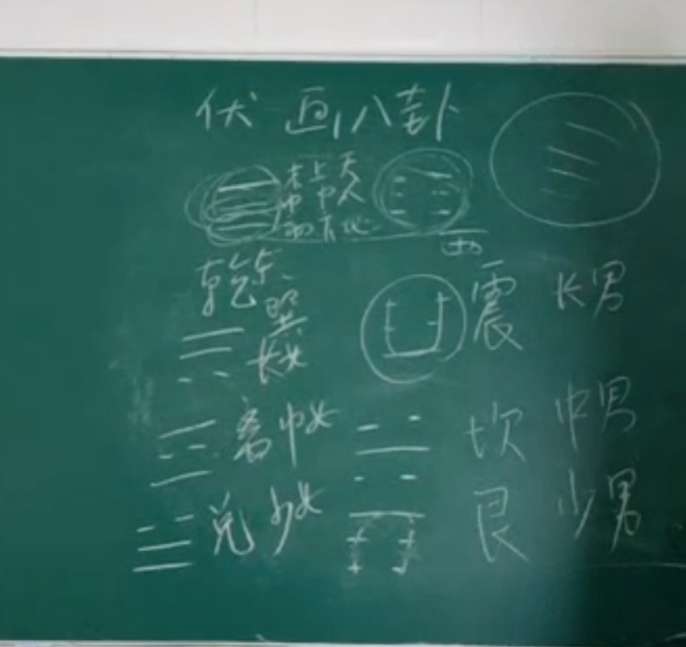 伏 画八卦
老上天
中中人
初下地
乾
巽
长女
震 长男
离 中女
坎 中男
兑 少女
艮 少男